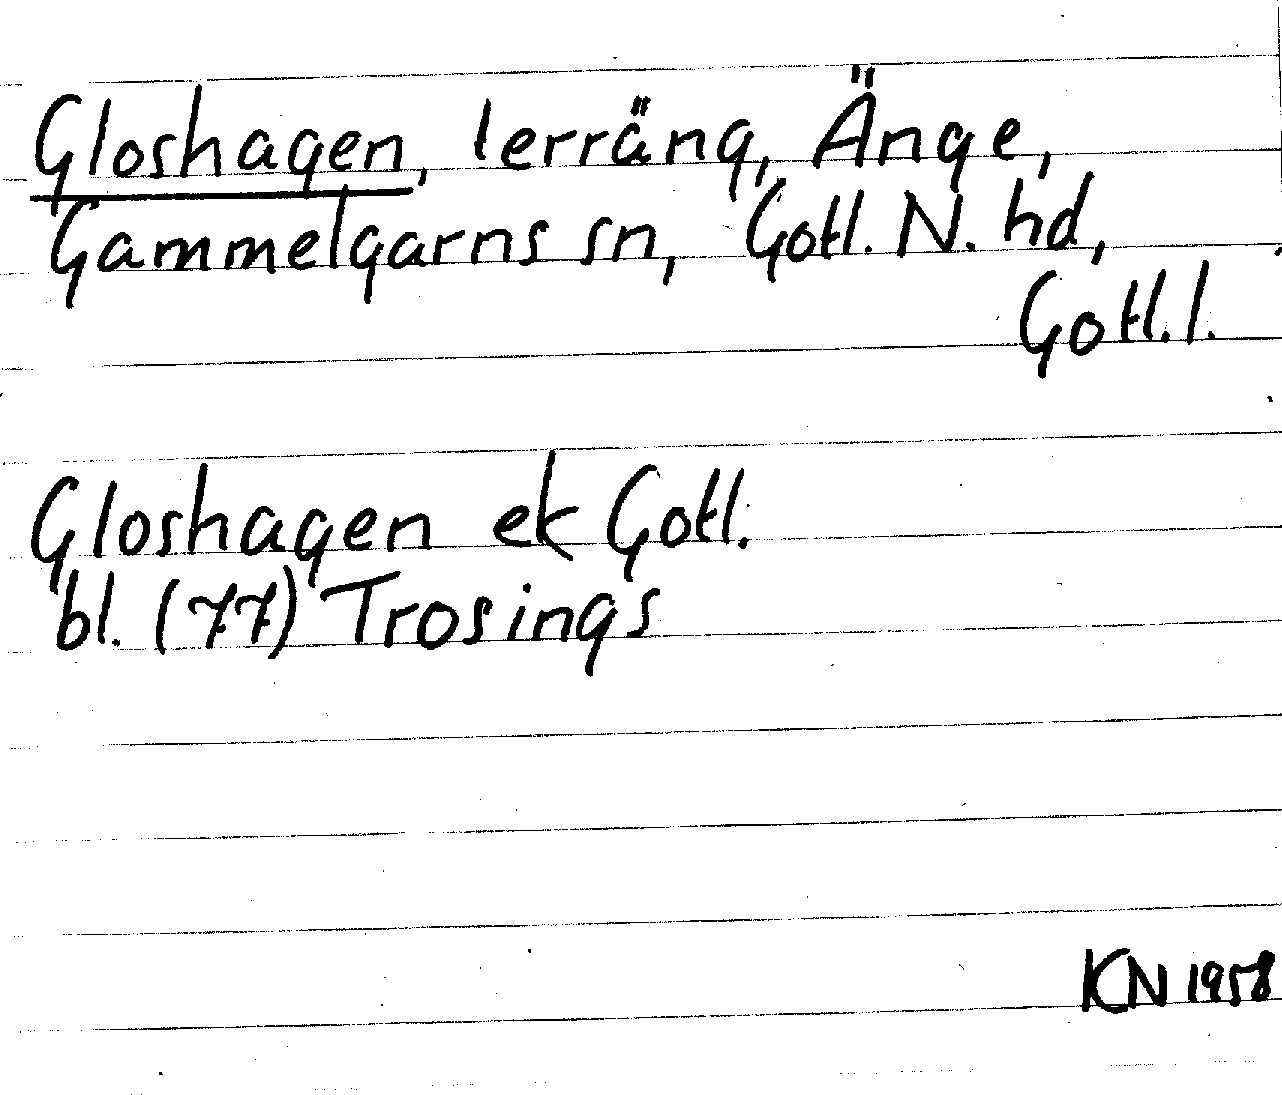 Gloshagen, terräng, Änge,
Gammelgarns sn, Gotl. N. hd,
Gotl. l.
Gloshagen ek Gotl.
bl. (77) Trosings
KN 1958